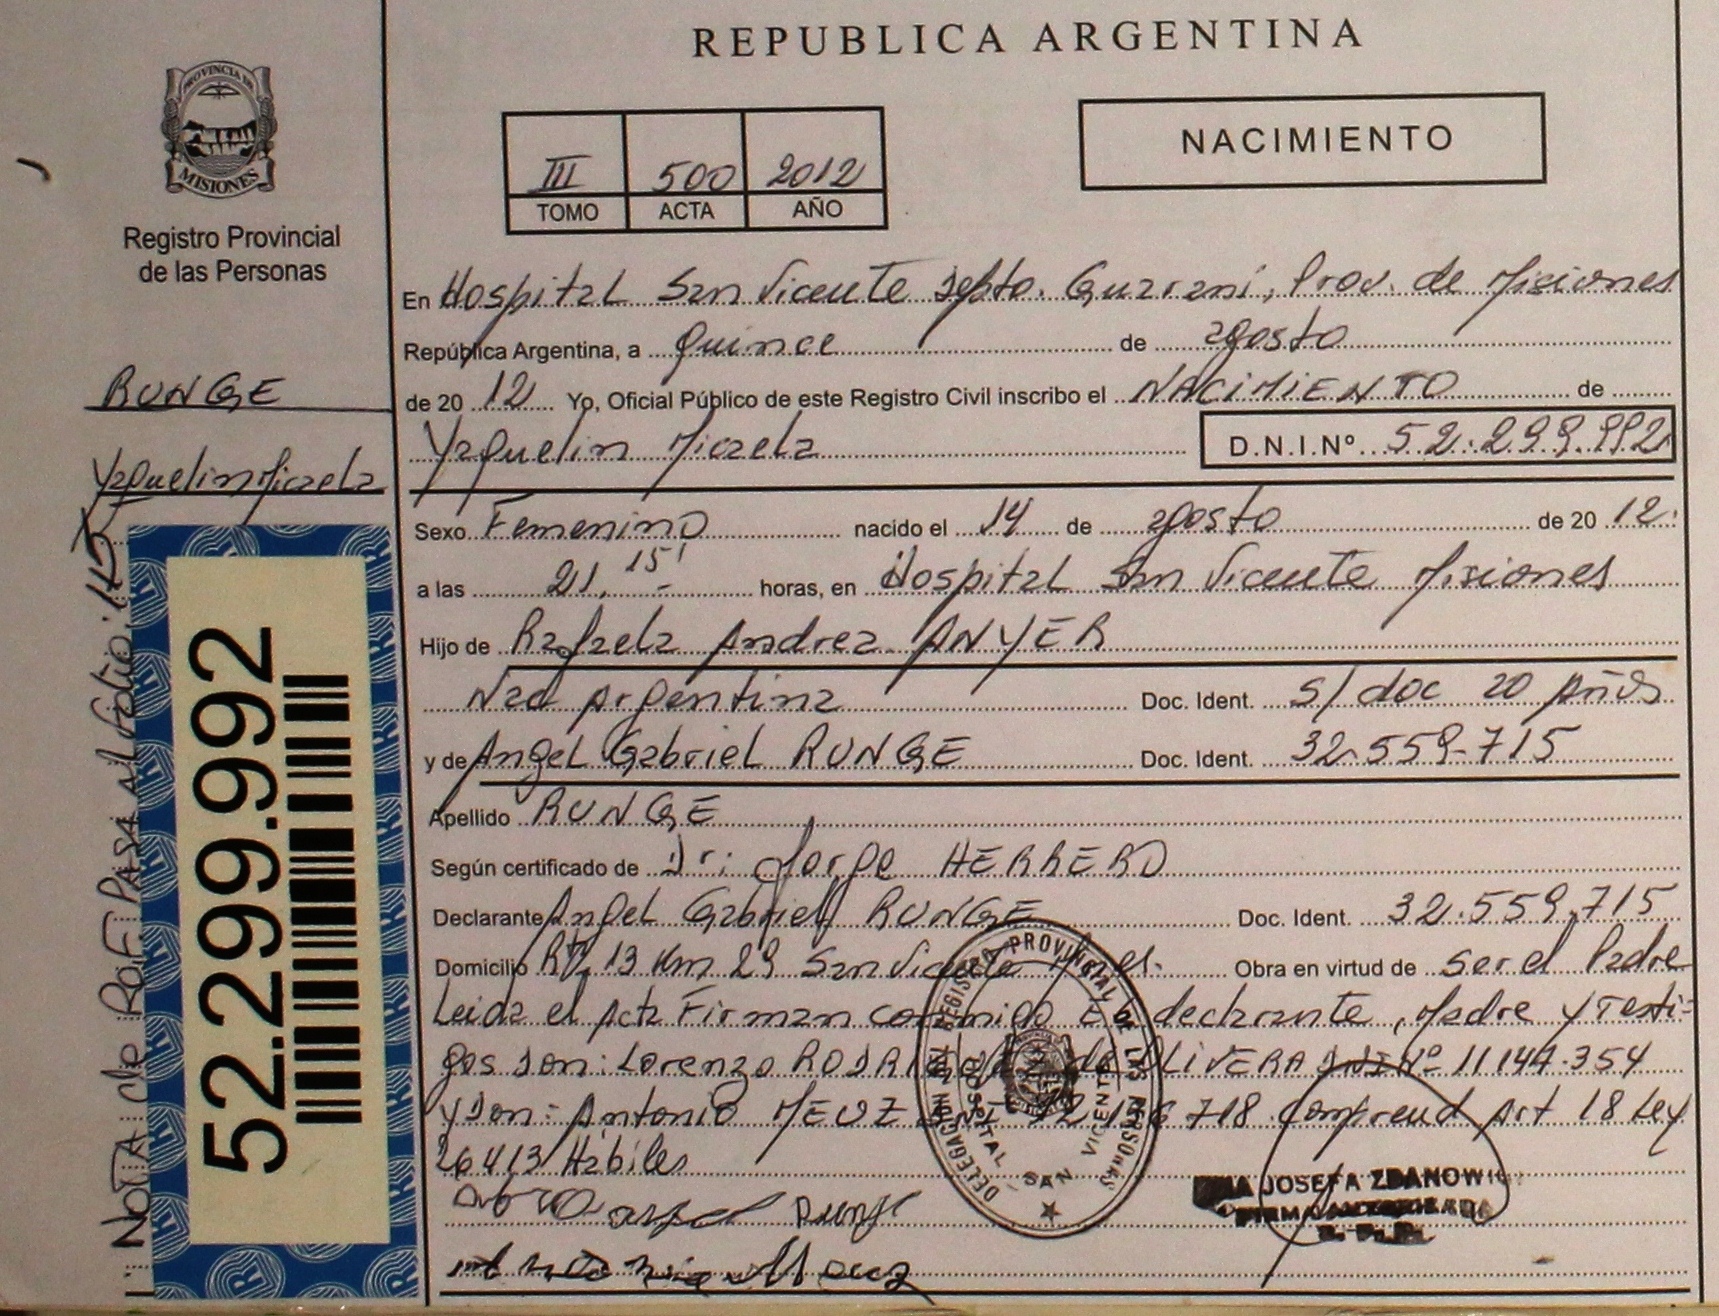 REPUBLICA ARGENTINA
PROVINCIA DE
MISIONES
Registro Provincial
de las Personas
III 500 2012
TOMO ACTA AÑO
NACIMIENTO
RUNGE
Yaquelin Micaela
En Hospital San Vicente Depto. Guaraní, Prov. de Misiones
República Argentina, a quince de agosto
de 20 12 Yo, Oficial Público de este Registro Civil inscribo el NACIMIENTO de
Yaquelin Micaela D.N.I.Nº 52.299.992
Sexo Femenino nacido el 14 de agosto de 20 12.
a las 21,15' horas, en Hospital San Vicente Misiones
Hijo de Rafaela Andrea ANYER
Nad Argentina Doc. Ident. S/doc 20 Años
y de Angel Gabriel RUNGE Doc. Ident. 32.559.715
Apellido RUNGE
Según certificado de Dr: Jorge HERRERO
Declarante Angel Gabriel RUNGE Doc. Ident. 32.559.715
Domicilio Rta 13 Km 29 San Vicente Obra en virtud de ser el Padre
Leida el Acta Firman conmigo El declarante, Madre y Testi-
gos Don: Lorenzo OLIVERA DNI Nº 11144.354
y Don: Antonio 718 Comprend Art 18 Ley
26413 Hábiles
angel Runge
52.299.992
NOTA de Ref. Pasa al folio: 115
DELEGACION REGISTRO PROVINCIAL DE LAS PERSONAS
HOSPITAL SAN VICENTE
JOSEFA ZDANOW
FIRMA AUTORIZADA